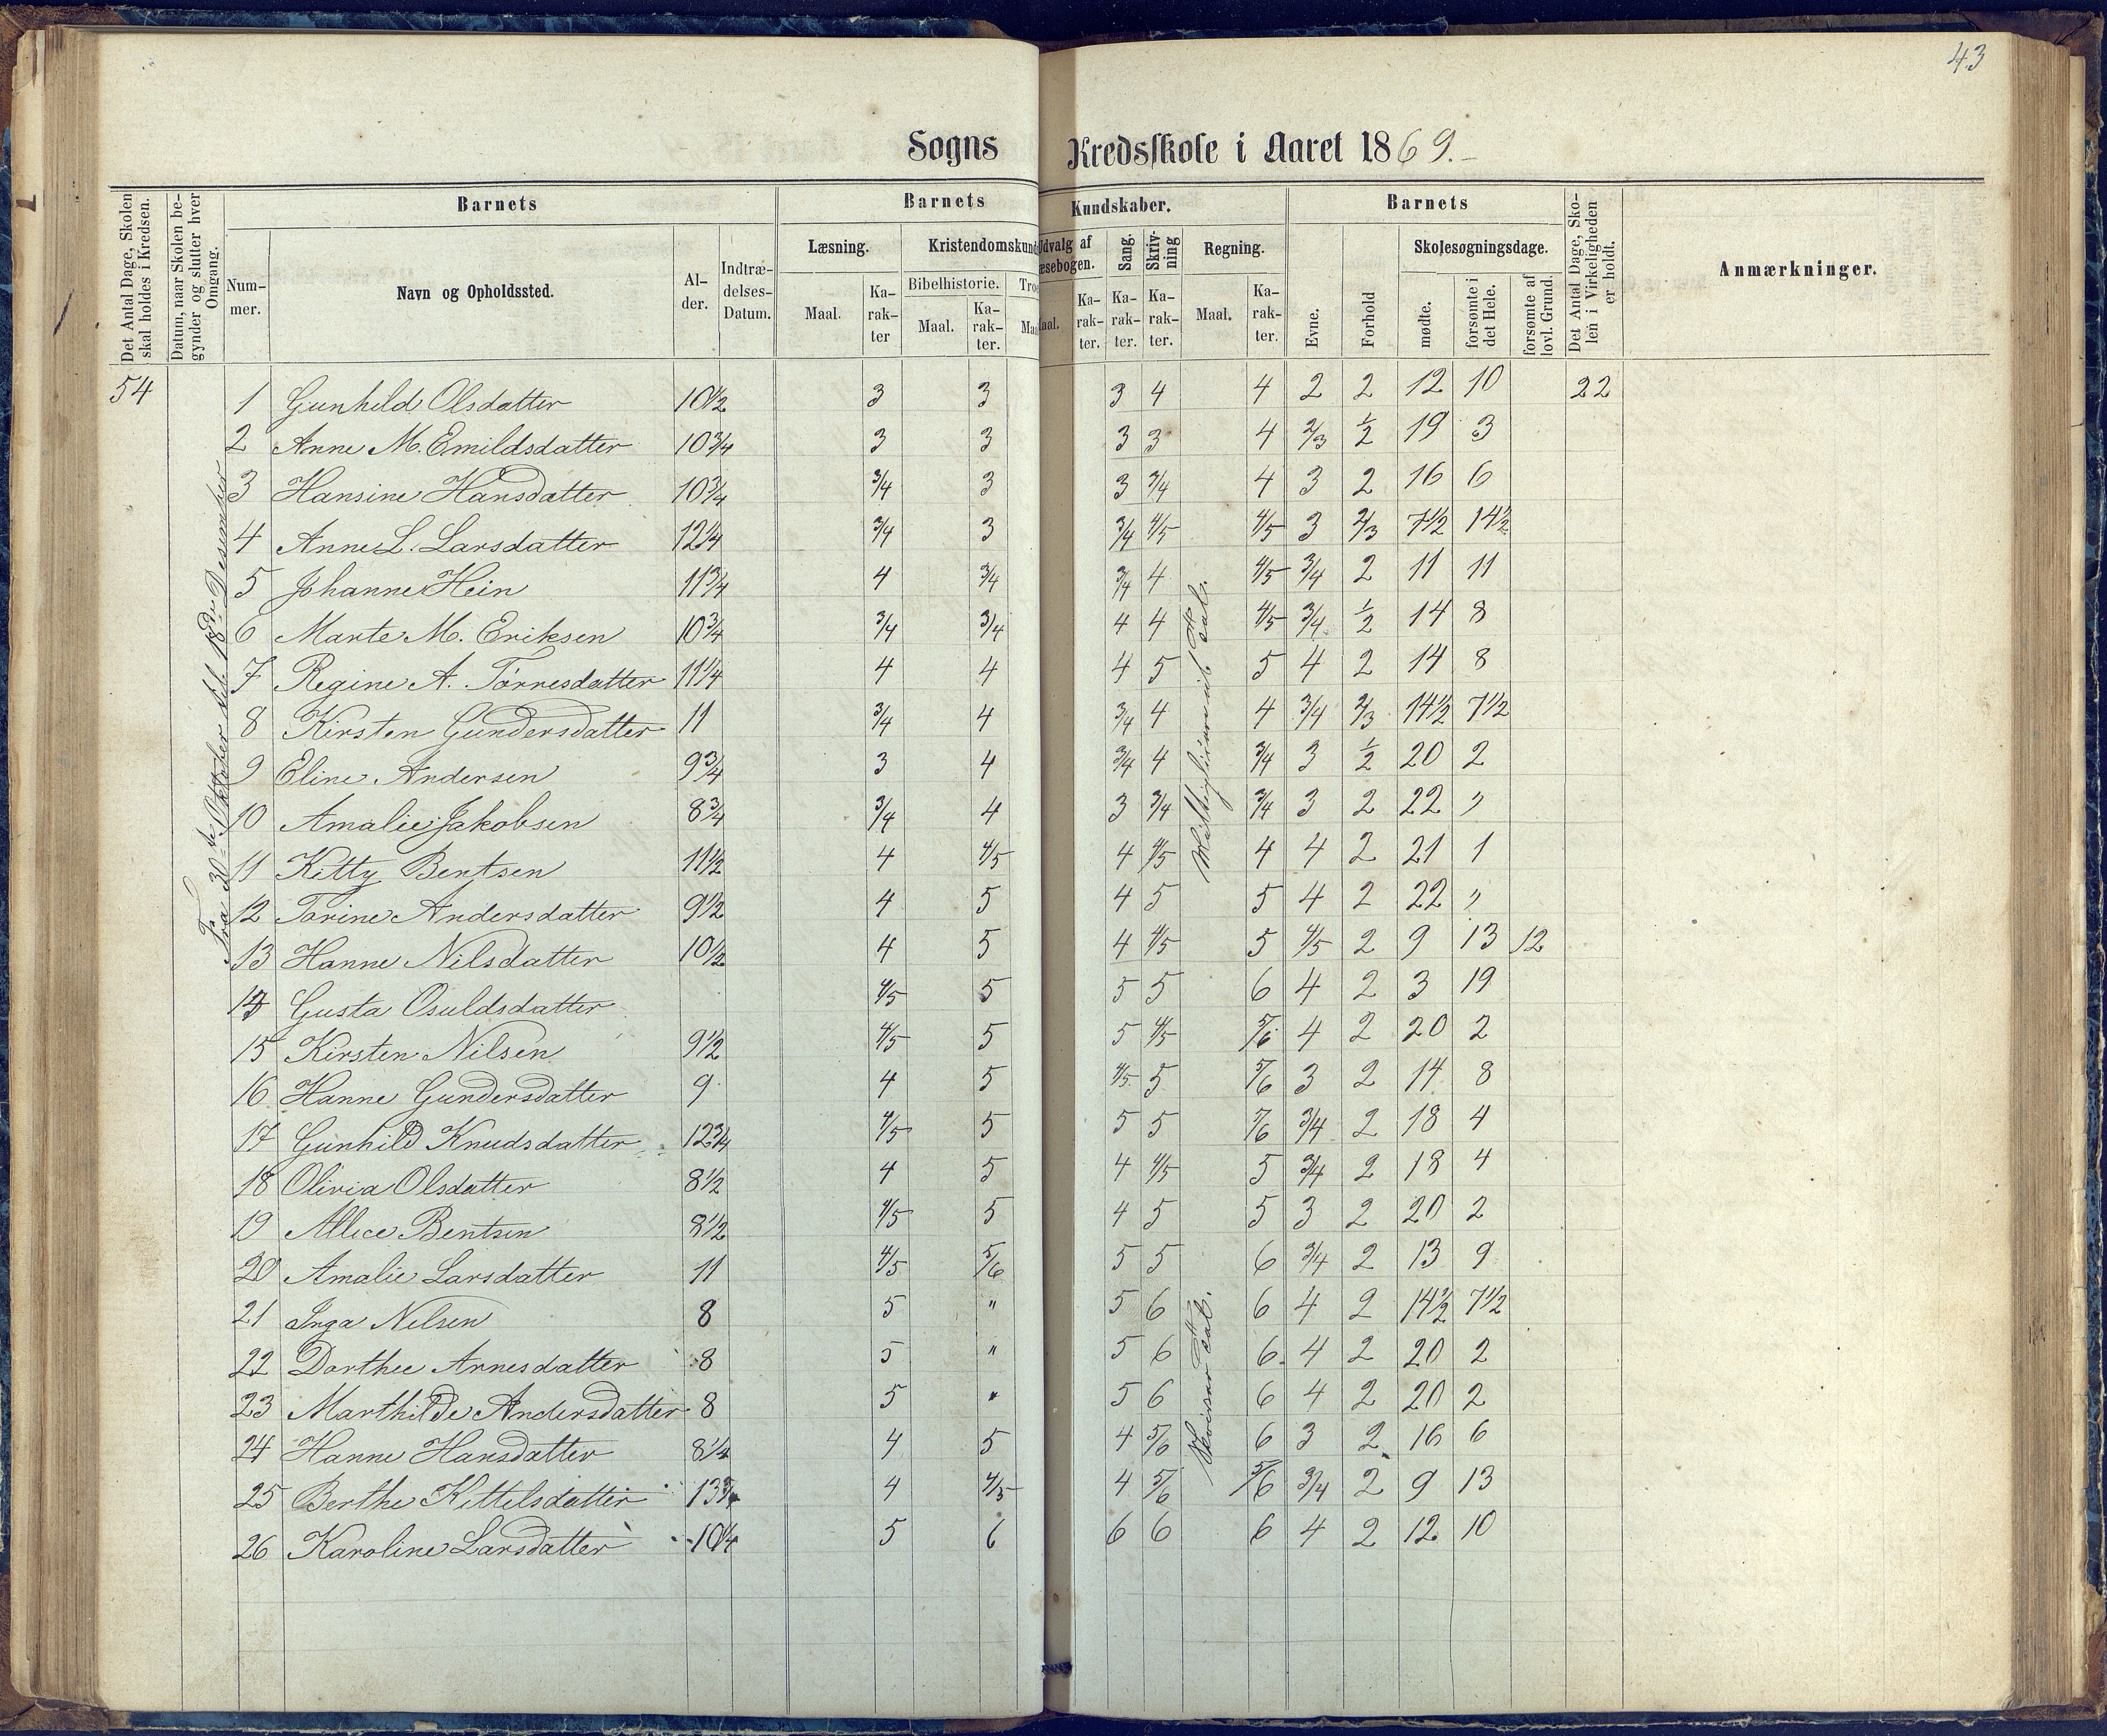 43
Sogns Kredsskole i Aaret 1869.
Det Antal Dage, Skolen skal holdes i Kredsen.
Datum, naar Skolen begynder og slutter hver Omgang.
Barnets
Nummer.
Navn og Opholdssted.
Alder.
Indtrædelses-Datum.
Barnets Kundskaber.
Læsning.
Maal.
Karakter
Kristendomskund
Bibelhistorie.
Maal.
Karakter.
Udvalg af Læsebogen.
Maal.
Karakter.
Sang.
Karakter.
Skrivning
Karakter.
Regning.
Maal.
Karakter.
Barnets
Evne.
Forhold
Skolesøgningsdage.
mødte.
forsømte i det Hele.
forsømte af lovl. Grund.
Det Antal Dage, Skolen i Virkeligheden er holdt.
Anmærkninger.
54
Fra 30te Oktober til 18de Desember
1 Gunhild Olsdatter 10 1/2 3 3 3 4 4 2 2 12 10 22
2 Anne M. Emildsdatter 10 3/4 3 3 3 3 4 2/3 1/2 19 3
3 Hansine Hansdatter 10 3/4 3/4 3 3 3/4 4 3 2 16 6
4 Anne L. Larsdatter 12 1/4 3/4 3 3/4 4/5 4/5 3 2/3 7 1/2 14 1/2
5 Johanne Hein 11 3/4 4 3/4 3/4 4 4/5 3/4 2 11 11
6 Marte M. Eriksen 10 3/4 3/4 3/4 4 4 4/5 3/4 1/2 14 8
7 Regine A. Tørresdatter 11 1/4 4 4 4 5 5 4 2 14 8
8 Kirsten Gundersdatter 11 3/4 4 3/4 4 4 3/4 2/3 14 1/2 7 1/2
9 Eline Andersen 9 3/4 3 4 3/4 4 3/4 3 1/2 20 2
10 Amalie Jakobsen 8 3/4 3/4 4 3 3/4 3/4 3 2 22 "
11 Kitty Bentsen 11 1/2 4 4/5 4 4/5 4 4 2 21 1
12 Torine Andersdatter 9 1/2 4 5 4 5 5 4 2 22 "
13 Hanne Nilsdatter 10 1/2 4 5 4 4/5 5 4/5 2 9 13 12
14 Gusta Osuldsdatter 4/5 5 5 5 6 4 2 3 19
15 Kirsten Nilsen 9 1/2 4/5 5 5 4/5 5/6 4 2 20 2
16 Hanne Gundersdatter 9 4 5 4/5 5 5/6 3 2 14 8
17 Gunhild Knudsdatter 12 3/4 4/5 5 5 5 5/6 3/4 2 18 4
18 Olivia Olsdatter 8 1/2 4 5 4 4/5 5 3/4 2 18 4
19 Allice Bentsen 8 1/2 4/5 5 4 5 5 3 2 20 2
20 Amalie Larsdatter 11 4/5 5/6 5 5 6 3/4 2 13 9
21 Inga Nilsen 8 5 " 5 6 6 4 2 14 1/2 7 1/2
22 Dorthee Arnesdatter 8 5 " 5 6 6 4 2 20 2
23 Marthilde Andersdatter 8 5 " 5 6 6 4 2 20 2
24 Hanne Hansdatter 8 1/4 4 5 4 5/6 6 3 2 16 6
25 Berthe Kittelsdatter 13 3/4 4 4/5 4 5/6 5/6 3/4 2 9 13
26 Karoline Larsdatter 10 1/4 5 6 6 6 6 4 2 12 10